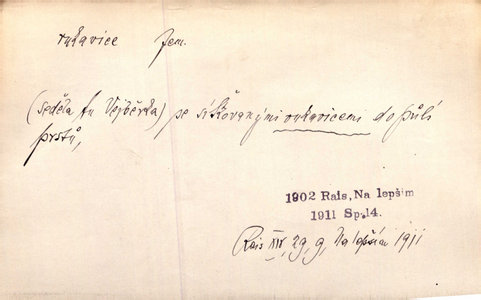 rukavice fem.
(seděla tu Vejběrka) se síťovanými rukavicemi do půli
prstů,
1902 Rais, Na lepším
1911 Sp.14.
Rais XIV, 29, 9, Na lepším 1911